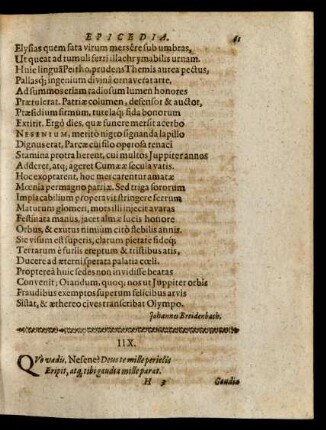 EPICEDIA. 41
Elysias quem fata virum mersêre sub umbras,
Ut queat ad tumuli ferri illachrymabilis urnam.
Huic linguâ Peitho, prudens Themis aurea pectus,
Pallasq́; ingenium divinâ ornaverat arte,
Ad summos etiam radiosum lumen honores
Prætulerat. Patriæ columen, defensor & auctor,
Præsidium firmum, tutelaq́; fida bonorum
Extitit. Ergò dies, quæ funere mersit acerbo
NESENUM, meritò nigro signanda lapillo
Dignus erat, Parcæ cui filo operosa renaci
Stamina protraherent, cui multos Juppiter annos
Adderet, atq; ageret Cumææ secula vatis.
Hoc exoptarent, hoc mercarentur amatæ
Mœnia permagno patriæ. Sed triga sororum
Implacabilium properavit stringere ferrum
Maturum glomeri, mors illi injecit avaras
Festinata manus, jacet almæ lucis honore
Orbus, & exutus nimium citò flebilis annis.
Sic visum est superis, clarum pietate fideq́;
Terrarum è furiis ereptum & tristibus atis,
Ducere ad æterni sperata palatia cœli.
Propterea huic sedes non invidisse beatas
Convenit; Orandum, quoq; nos ut Juppiter orbis
Fraudibus exemptos superum felicibus arvis
Sistat, & æthereo cives transcribat Olympo.
Johannes Breidenbach.
IIX.
QVo vadis, Nesene? Deus te mille periclis
Eripit, atq; tibi gaudia mille parat.
H 3 Gaudia